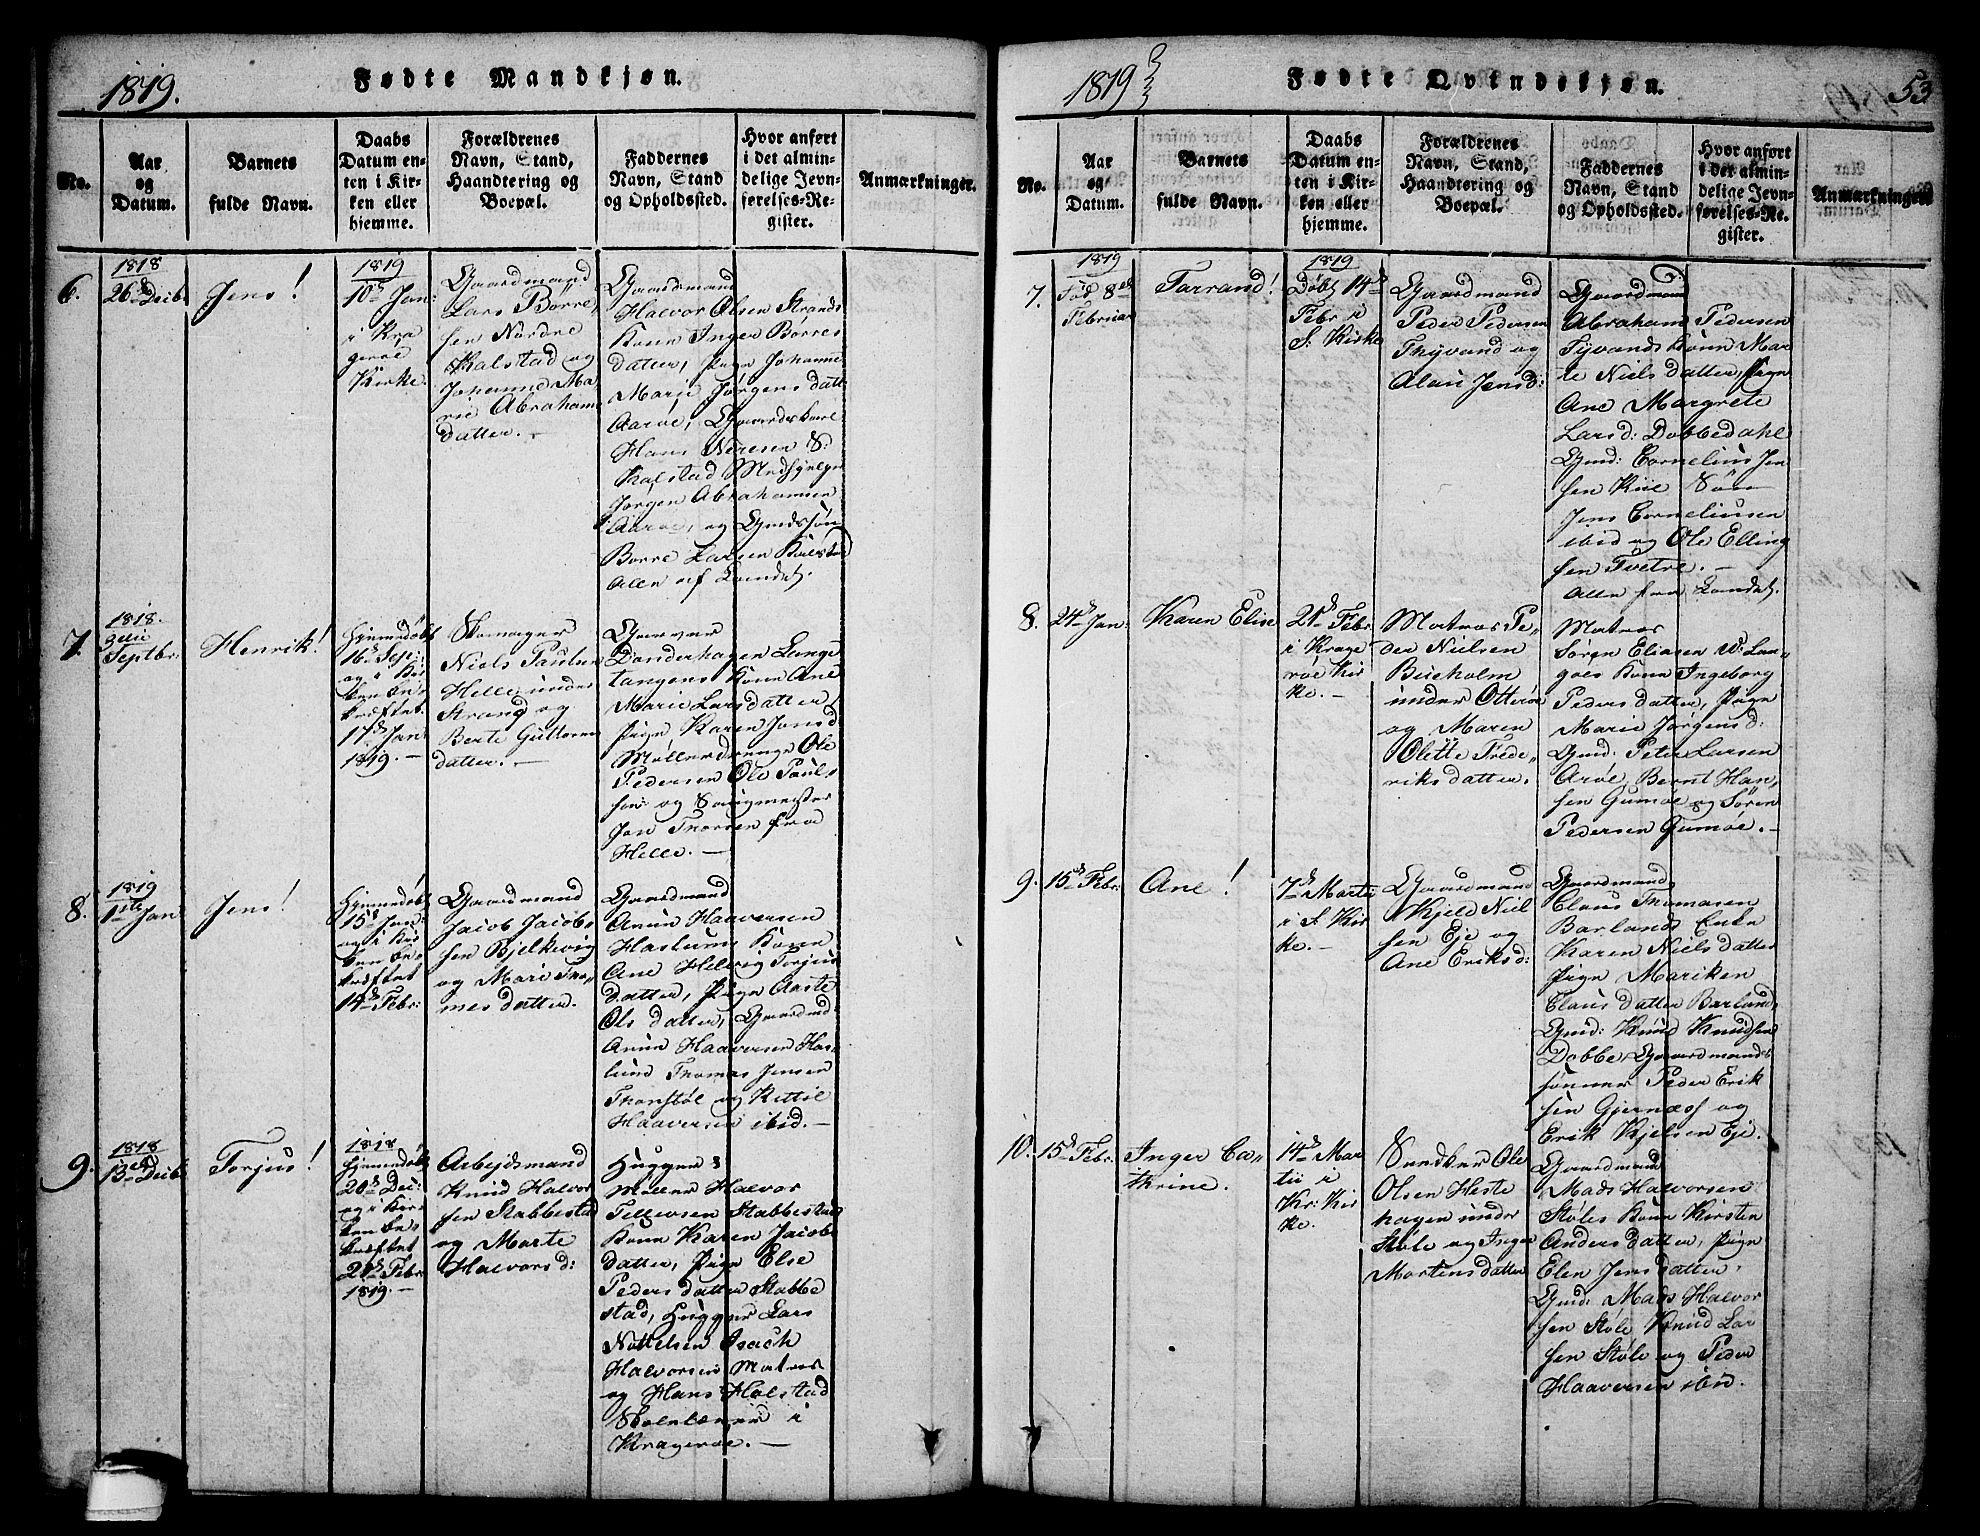 1819.
Fødte Mandkjøn.
No.
Aar
og
Datum.
Barnets
fulde Navn.
Daabs
Datum en-
ten i Kir-
ken eller
hjemme.
Forældrenes
Navn, Stand,
Haandtering og
Boepæl.
Faddernes
Navn, Stand
og Opholdssted.
Hvor anført
i det almin-
delige Jevn-
førelses-Re-
gister.
Anmærkninger.
6.
1818
26d Decbr
Jens!
1819
10d Jan:
i Kra
gerøe
Kirke.
Gaardmand
Lars Borre,
sen Nordre
Kalstad og
Johanne Ma
rie Abrahams
datter.
Gaardmand
Halvor Olsen Strands
Kone Inger Borres
datter, Pige Johanne
Marie Jørgens datt:
Aarøe, Gaardskarl
Hans Nersen S.
Kalstad
Jørgen Abrahamsen
Aarøe, og Gmdssøn
Borre Larsen Kalstad
Alle af Landet.
7.
1818.
Septbr:
Henrik!
Hjemmedøbt
16d Sep:
og i Kir
ken be,
kræftet
17d Jan:
1819.
Skomager
Niels Paulsen
Helle under
Strand og
Berte Guttorms
datter.
Donderhagen Lange
tangens Kone Ane
Marie Larsdatter
Pige Karen Jonsd:
Møllerdrenge Ole
Pedersen Ole Paul,
sen og Saugmester
Jon Thorsen fra
Helle.
8.
1819
1ste Jan
Jens!
Hjemmedøbt
15d Jan:
og i Kir
ken be,
kræftet
14d Febr:
Gaardmand
Jacob Jacob,
sen Bjelkevig
og Mari Tho,
mesdatter.
Gaardmand
Anun Haaversen
Haslums Kone
Ane Helvig Torjus
datter, Pige Aaste
Ols datter, Gaardmd
Anun Haaversen Has
lund Thomas Jensen
Thorstøl og Kittil
Haaversen ibid.
9.
1818
13de Decbr
Torjus!
1818
Hjemmedøbt
20d Dec:
og i Kir
ken be,
kræftet
21d Febr:
1819.
Arbejdsmand
Knud Halvor
sen Stabbestad
og Marte
Halvorsd:
Hugger &
Møller Halvor
Tellevsen Stabbestads
Kone Karen Jacobs
datter, Pige Else
Peders datter Stabbe
stad, Hugger Lars
Nottelsen Isach
Halvorsen Matros
og Hans Halstad
i
Kragerøe.
1819
Fødte Qvindekjøn.
53
No.
Aar
og
Datum.
Barnets
fulde Navn.
Daabs
Datum en-
ten i Kir-
ken eller
hjemme.
Forældrenes
Navn, Stand,
Haandtering og
Boepæl.
Faddernes
Navn, Stand
og Opholdssted.
Hvor anført
i det almin-
delige Jevn-
førelses-Re-
gister.
Anmærkninger.
7.
1819
Fød 8de
Februar
Tarrand!
1819
Døbt 14d
Febr i
S. Kirke
Gaardmand
Peder Pedersen
Thyvand og
Alari Jensd:
Gaardmand
Abraham Pedersen
Tyvands Kone Mar
te Niels datter, Pige
Ane Margrete
Larsd: Dobbedahl
Gmd: Cornelius Jen
sen Kiil Søn
Jens Corneliusen
ibid og Ole Elling
sen Tvetre.
Alle fra Landet.
8.
24d Jan:
Karen Elise
21d Febr
i Krage
røe Kir
ke.
Matros Pe,
der Nielsen
Buholm
under Otterøe
og Maren
Olette Frede,
riksdatter.
Matros
Søren Eliasen W: Lan,
gøes Kone Ingeborg
Peders datter, Pige
Marie Jørgensd:
Gmd: Peter Larsen
Arøe, Bernt Han,
sen Gumøe og Søren
Pedersen Gumøe.
9.
15d Febr:
Ane!
7d Marti
i S. Kir
ke.
Gaardmand
Kjeld Niel
sen Eje og
Ane Eriksd:
Gaardmand
Claus Thomasen
Barlands Enke
Karen Niels datter
Pige Mariken
Claus datter Barland,
Gmd: Knud Knudsen
Dobbe, Gaardmands
sønner Peder Erik
sen Gjernæss og
Erik Kjelsen Eje.
10.
15d Febr:
Inger Ca,
thrine.
14d Mar
tii i
Kr: Kir
ke.
Snedker Ole
Olsen Heste
hagen under
Støle og Inger
Mortensdatter
Gaardmand
Mads Halvorsen
Støles Kone Kirsten
Anders datter, Pige
Elen Jens datter.
Gmd: Mads Halvor
sen Støle Knud Lar
sen Støle og Peder
Haaversen ibid.